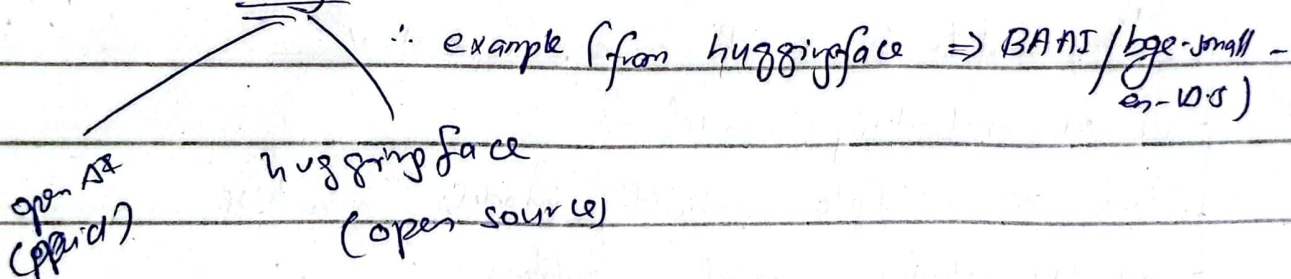 ∴ example (from huggingface ⇒ BAAI/bge-small-
en-v1.5)
open AI
(paid)
huggingface
(open source)